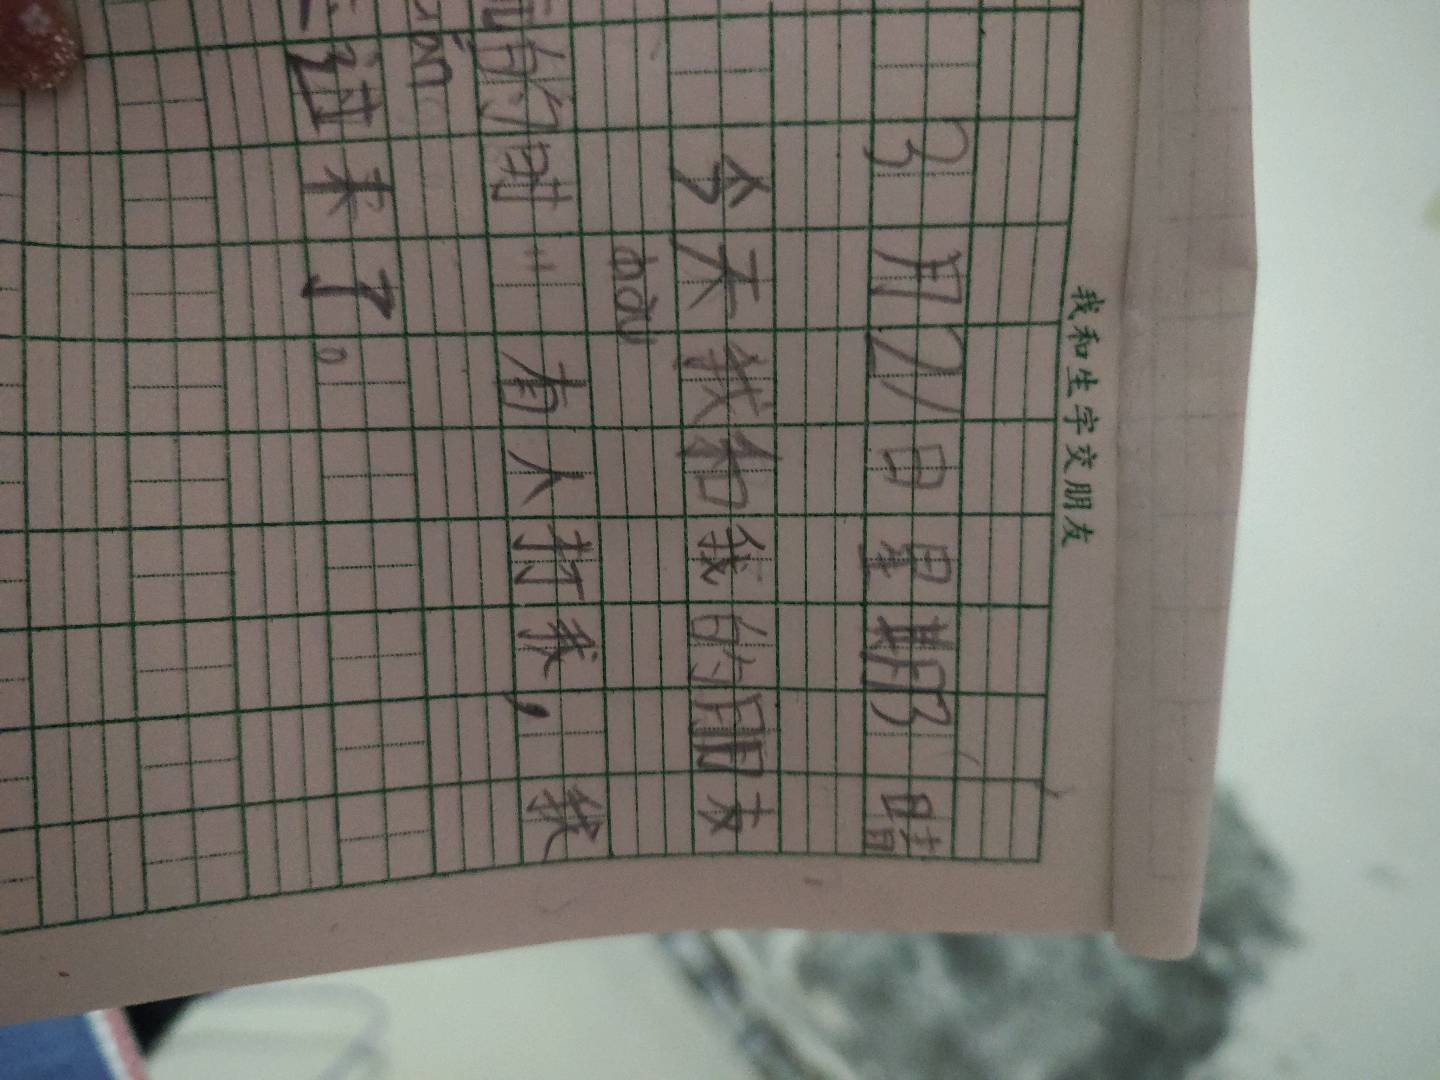 我和生字交朋友
3月21日星期3 晴
今天我和我的朋友
的时 有人打我，我
来了。